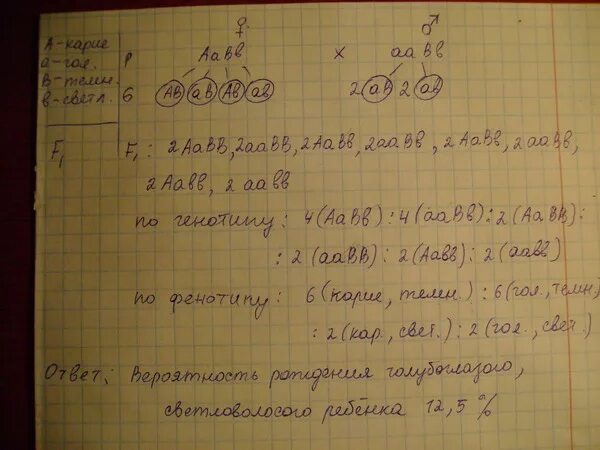 ♀ ♂
А-карие Р АаВв х ааВв
а-гол.
В-темн.
в-светл. G АВ аВ Ав ав 2 аВ 2 ав
F₁ F₁: 2АаВВ, 2ааВВ, 2АаВв, 2ааВв, 2АаВв, 2ааВв,
2Аавв, 2 аавв
по генотипу: 4(АаВв):4(ааВв):2(АаВВ):
:2(ааВВ):2(Аавв):2(аавв)
по фенотипу: 6(карие, темн.):6(гол., темн.)
:2(кар., свет.):2(гол., свет.)
Ответ: Вероятность рождения голубоглазого,
светловолосого ребёнка 12,5 %